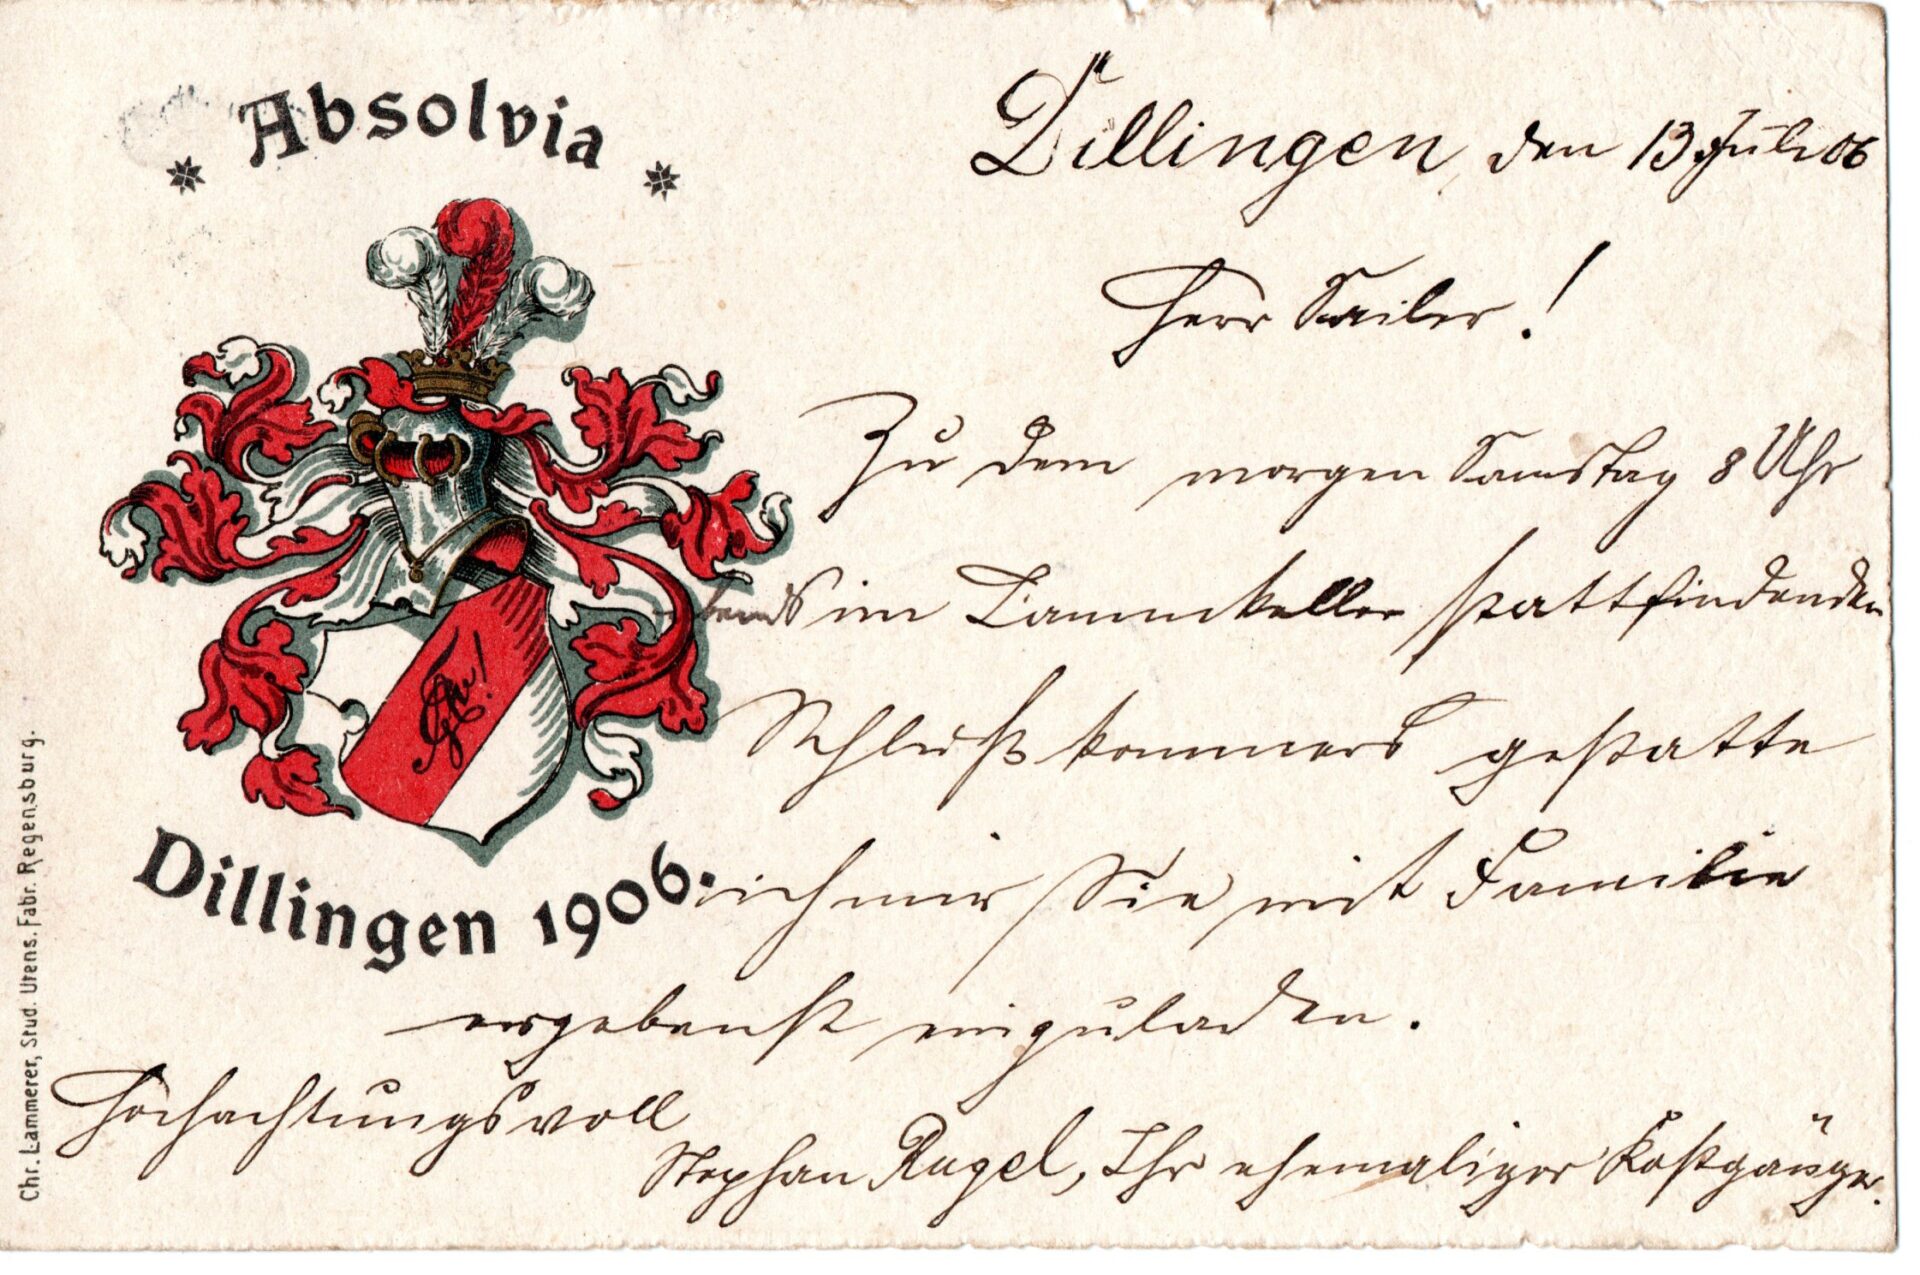 Absolvia
Dillingen 1906.
Chr. Lammerer, Stud. Utens. Fabr. Regensburg.
Dillingen, den 13 Juli 06
Herr Sailer!
Zu dem morgen Samstag 8 Uhr
abends im Lammkeller stattfindenden
Schlußkommers gestatte
ich mir Sie mit Familie
ergebenst einzuladen.
Hochachtungsvoll
Stephan Rugel, Ihr ehemaliger Kostgänger.